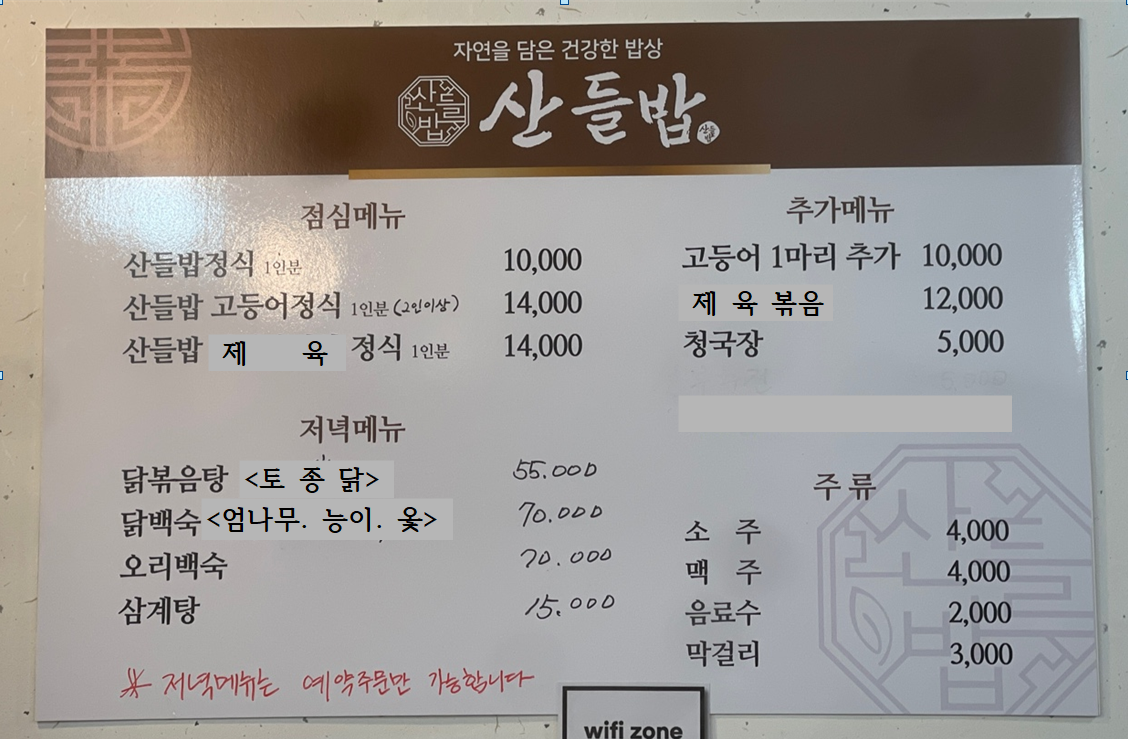 자연을 담은 건강한 밥상
산들밥 산들밥 산들밥
점심메뉴
산들밥정식 1인분 10,000
산들밥 고등어정식 1인분 (2인이상) 14,000
산들밥 제 육 정식 1인분 14,000
저녁메뉴
닭볶음탕 <토 종 닭> 55.000
닭백숙 <엄나무. 능이. 옻> 70.000
오리백숙 70.000
삼계탕 15.000
※ 저녁메뉴는 예약주문만 가능합니다
추가메뉴
고등어 1마리 추가 10,000
제 육 볶음 12,000
청국장 5,000
주 류
소 주 4,000
맥 주 4,000
음료수 2,000
막걸리 3,000
산들밥
wifi zone